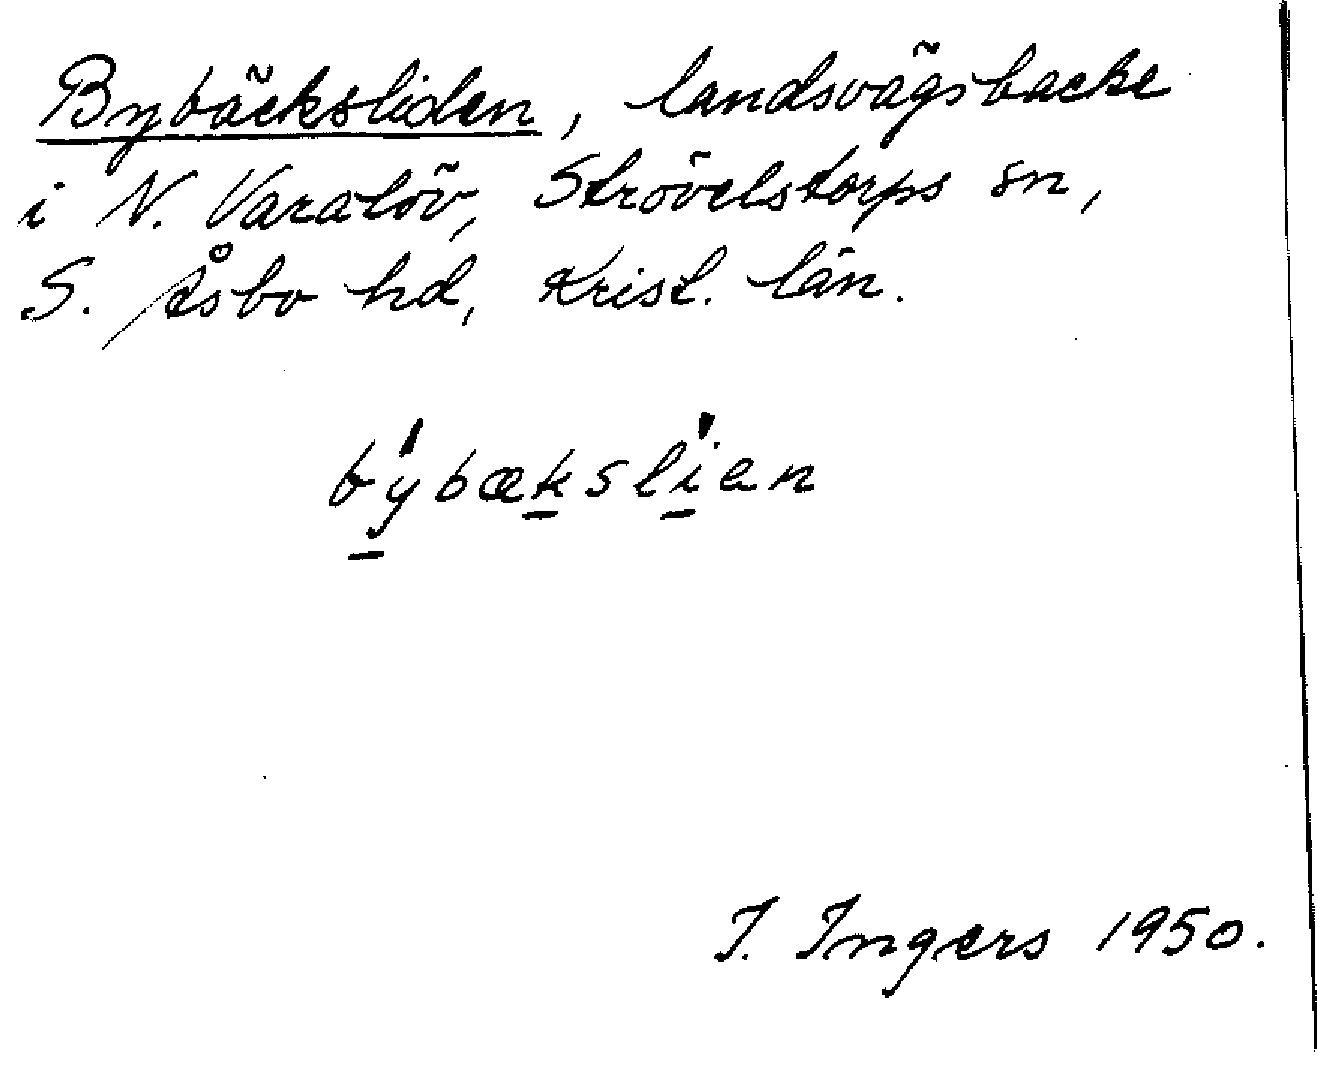 Bybäcksliden, landsvägsbacke
i N. Varalöv, Strövelstorps sn,
S. Åsbo hd, Krist. län.
býbækslìan
I. Ingers 1950.